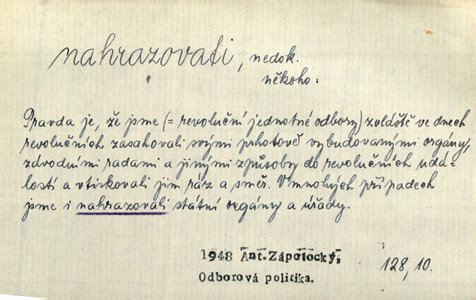 nahrazovati, nedok.
" někoho:
Pravda je, že jsme (= revoluční jednotné odbory) zvláště ve dnech
revolučních zasahovali svými pohotově vybudovanými orgány,
závodními radami a jinými způsoby do revolučních udá-
lostí a vtiskovali jim ráz a směr. V mnohých případech
jsme i nahrazovali státní orgány a úřady.
1948 Ant.Zápotocký,
Odborová politika.
128,10.